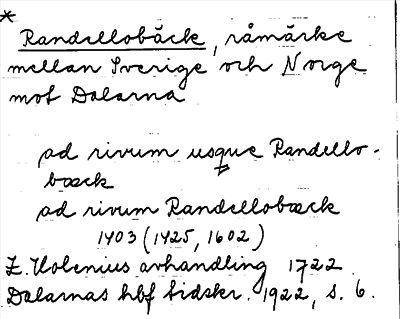 *
Randellobäck, råmärke
mellan Sverige och Norge
mot Dalarna
ad rivum usque Randello-
bæck
ad rivum Randellobæck
1403 (1425, 1602)
E. Holenius avhandling 1722
Dalarnas hbf tidskr. 1922, s. 6.